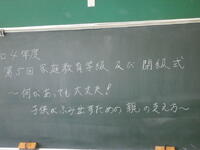 04年度
第5回家庭教育学級 及び 閉級式
～何があっても大丈夫!
子供がふみ出すための 親の支え方～